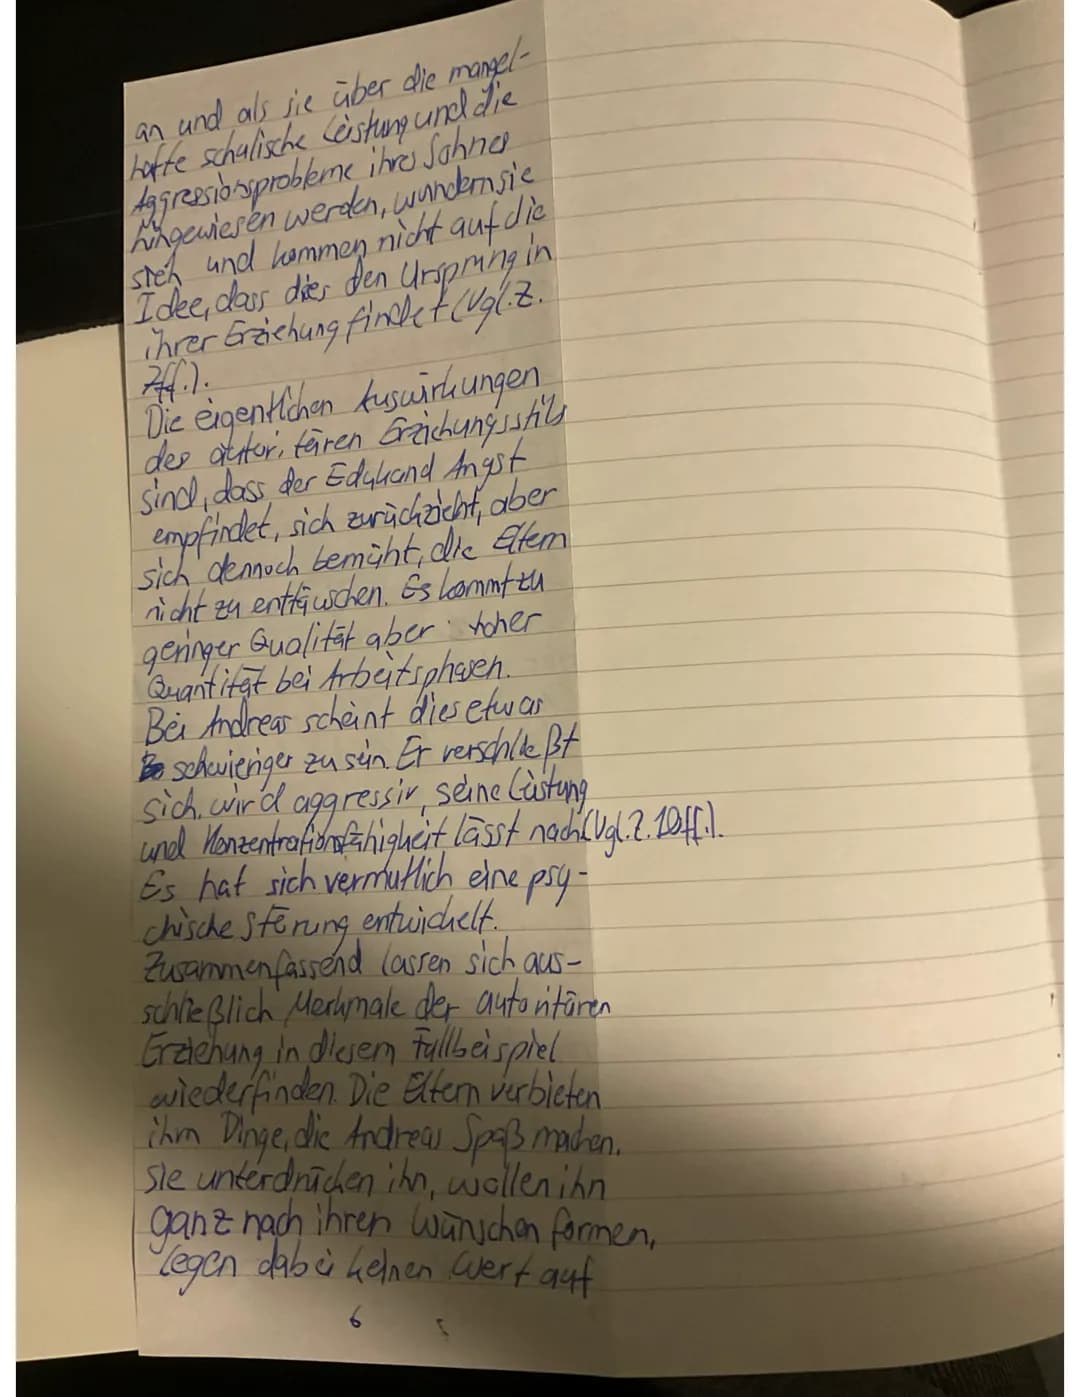 an und als sie über die mangel-
hafte schulische Leistung und die
Aggressionsprobleme ihres Sohnes
hingewiesen werden, wundern sie
sich und kommen nicht auf die
Idee, dass dies den Ursprung in
ihrer Erziehung findet (Vgl. Z.
7ff.).
Die eigentlichen Auswirkungen
des autoritären Erziehungsstils
sind, dass der Edukand Angst
empfindet, sich zurückzieht, aber
sich dennoch bemüht, die Eltern
nicht zu enttäuschen. Es kommt zu
geringer Qualität aber hoher
Quantität bei Arbeitsphasen.
Bei Andreas scheint dies etwas
schwieriger zu sein. Er verschließt
sich, wird aggressiv, seine Leistung
und Konzentrationsfähigkeit lässt nach (Vgl. Z. 10ff.).
Es hat sich vermutlich eine psy-
chische Störung entwickelt.
Zusammenfassend lassen sich aus-
schließlich Merkmale der autoritären
Erziehung in diesem Fallbeispiel
wiederfinden. Die Eltern verbieten
ihm Dinge, die Andreas Spaß machen,
sie unterdrücken ihn, wollen ihn
ganz nach ihren Wünschen formen,
legen dabei keinen Wert auf
6